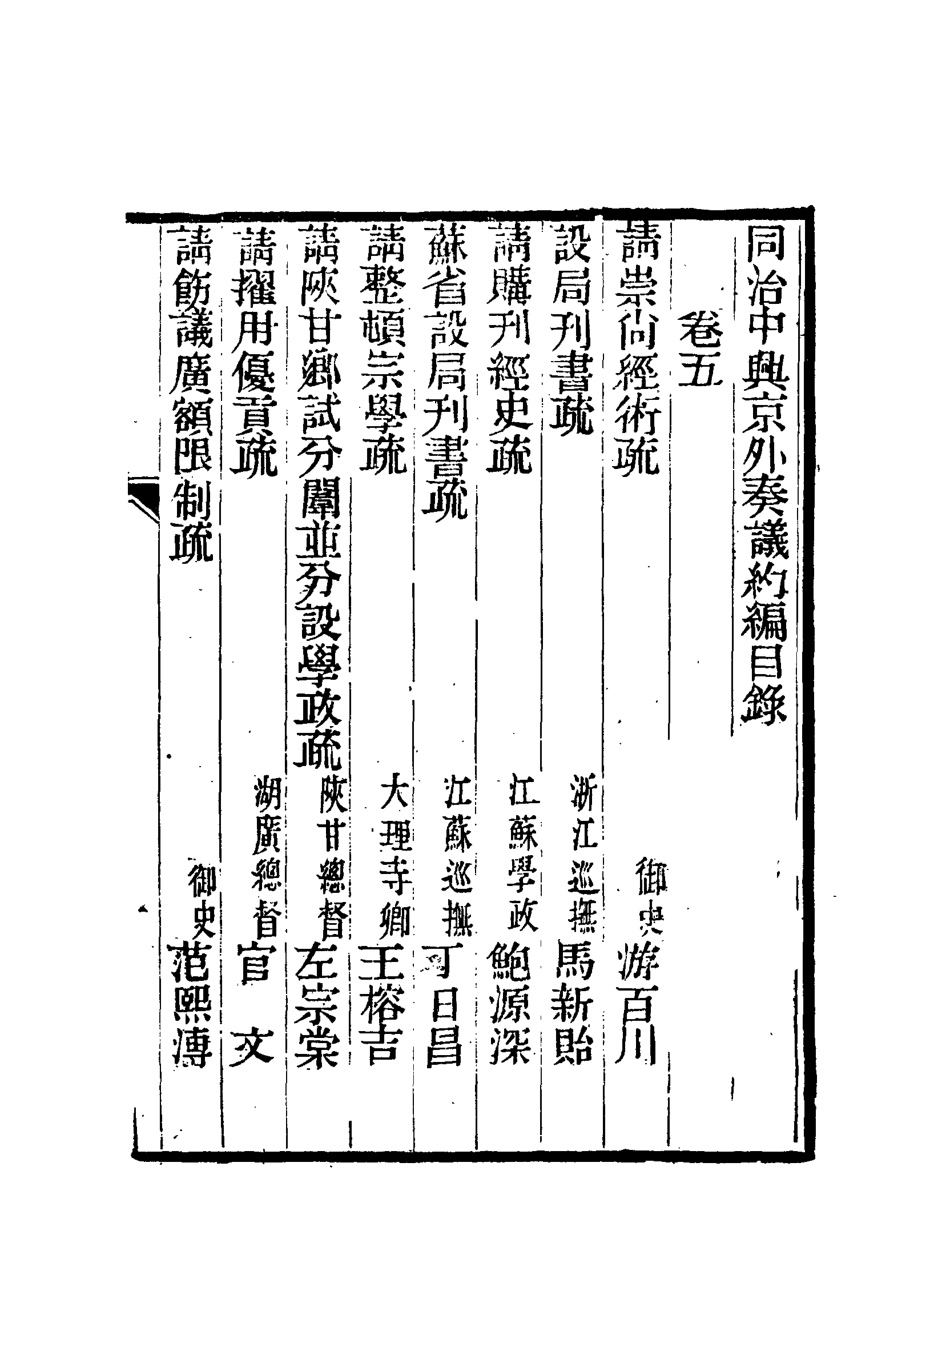 同治中興京外奏議約編目錄
卷五
請崇尚經術疏 御史 游百川
設局刊書疏 浙江巡撫 馬新貽
請購刊經史疏 江蘇學政 鮑源深
蘇省設局刊書疏 江蘇巡撫 丁日昌
請整頓宗學疏 大理寺卿 王榕吉
請陝甘鄉試分闈並分設學政疏 陝甘總督 左宗棠
請擢用優貢疏 湖廣總督 官文
請飭議廣額限制疏 御史 范熙溥